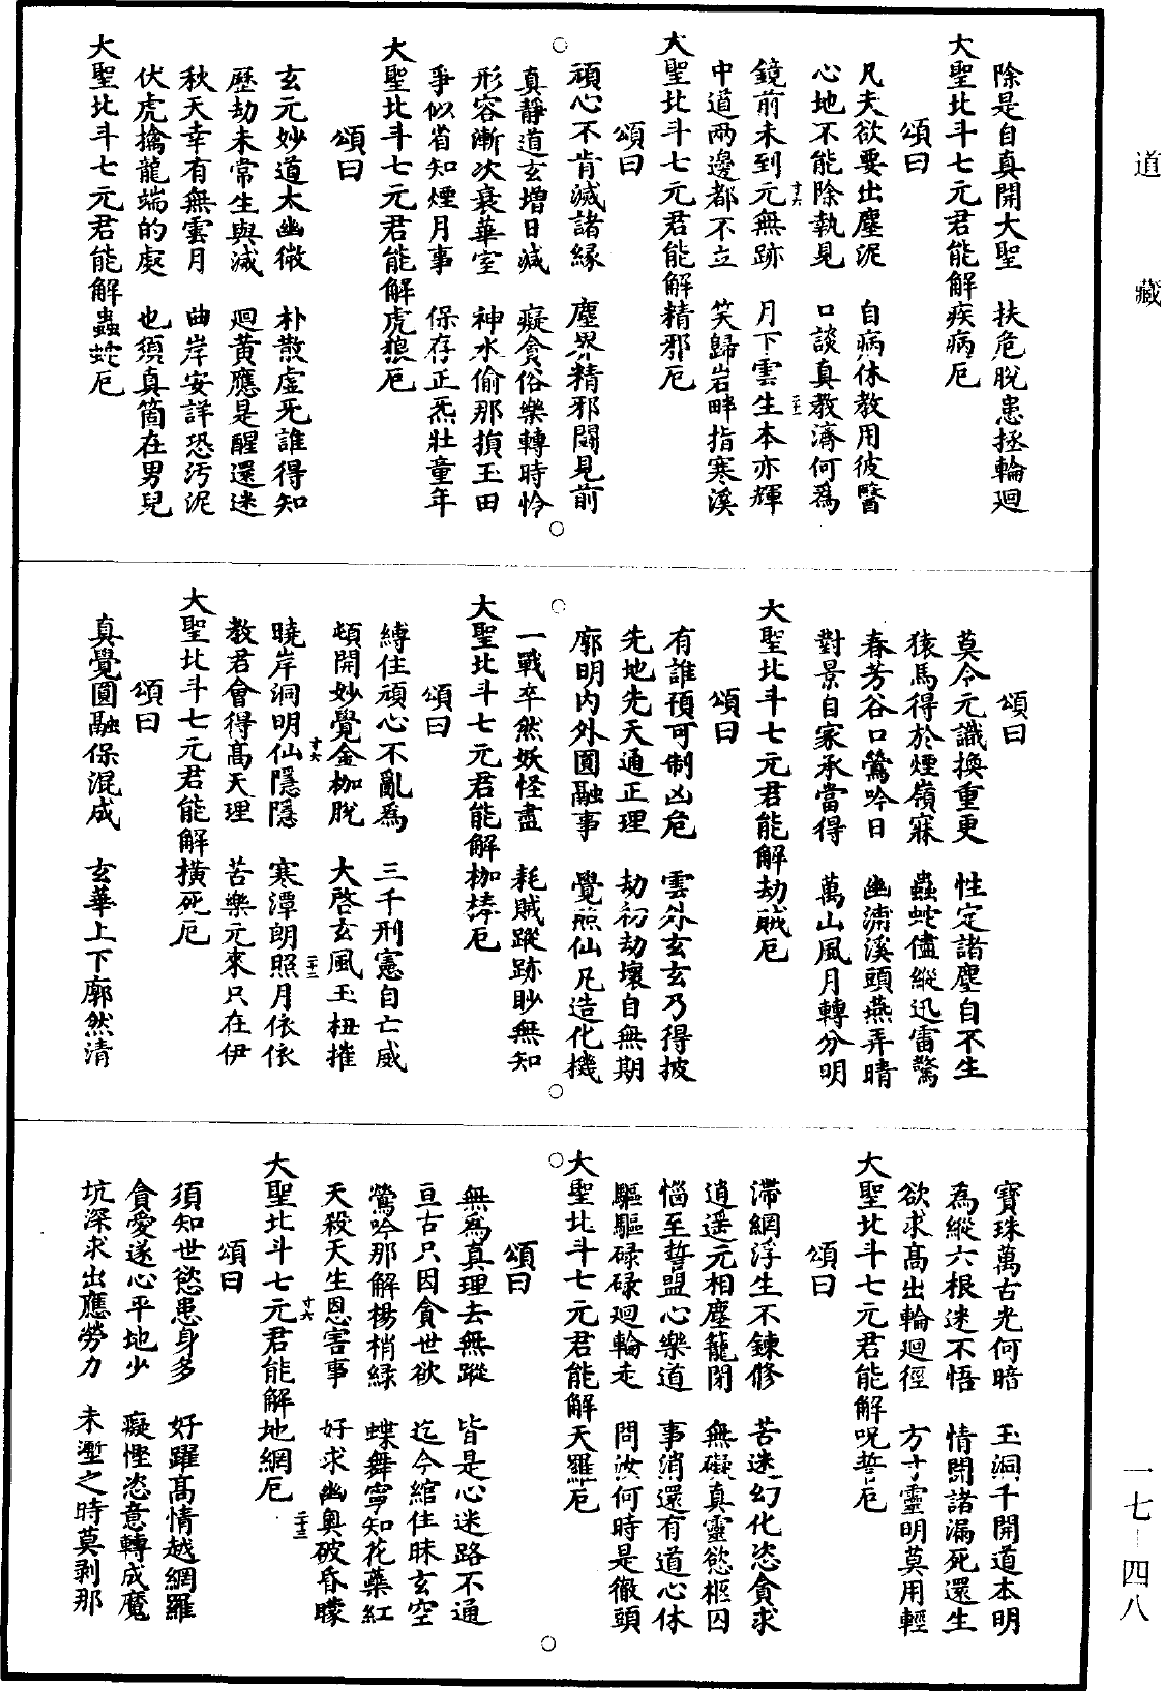 道藏
除是自真開大聖　扶危脫患拯輪迴
大聖北斗七元君能解疾病厄
頌曰
凡夫欲要出塵泥　自病休教用彼醫
心地不能除執見　口談真教濟何為
十六　二十一
鏡前未到元無跡　月下雲生本亦輝
中道兩邊都不立　笑歸岩畔指寒溪
大聖北斗七元君能解精邪厄
頌曰
頑心不肯滅諸緣　塵界精邪閙見前
真靜道玄增日減　癡貪俗樂轉時怜
形容漸次衰華室　神水偷那損玉田
爭似省知煙月事　保存正炁壯童年
大聖北斗七元君能解虎狼厄
頌曰
玄元妙道太幽微　朴散虛死誰得知
歷劫未常生與滅　迴黃應是醒還迷
秋天幸有無雲月　曲岸安詳恐污泥
伏虎擒龍端的處　也須真箇在男兒
大聖北斗七元君能解蟲蛇厄
頌曰
莫令元識換重更　性定諸塵自不生
猿馬得於煙嶺寐　蟲蛇儘縱迅雷驚
春芳谷口鶯吟日　幽淸溪頭燕弄晴
對景自家承當得　萬山風月轉分明
大聖北斗七元君能解劫賊厄
頌曰
有誰預可制凶危　雲外玄玄乃得披
先地先天通正理　劫初劫壞自無期
廓明內外圓融事　覺照仙凡造化機
一戰卒然妖怪盡　耗賊蹤跡眇無知
大聖北斗七元君能解枷棒厄
頌曰
縛住頑心不亂為　三千刑憲自亡威
頓開妙覺金枷脫　大啓玄風玉杻摧
十六　二十二
曉岸洞明仙隱隱　寒潭朗照月依依
教君會得高天理　苦樂元來只在伊
大聖北斗七元君能解橫死厄
頌曰
真覺圓融保混成　玄華上下廓然清
寶珠萬古光何暗　玉洞千開道本明
為縱六根迷不悟　情閉諸漏死還生
欲求高出輪迴徑　方寸靈明莫用輕
大聖北斗七元君能解呪誓厄
頌曰
滯網浮生不鍊修　苦迷幻化恣貪求
逍遥元相塵籠閉　無礙真靈慾柩囚
惱至誓盟心樂道　事消還有道心休
驅驅碌碌迴輪走　問汝何時是徹頭
大聖北斗七元君能解天羅厄
頌曰
無為真理去無蹤　皆是心迷路不通
亘古只因貪世欲　迄今綰住昧玄空
鶯吟那解楊梢綠　蝶舞寧知花蘂紅
天殺天生恩害事　好求幽奧破昏矇
十六　二十三
大聖北斗七元君能解地網厄
頌曰
須知世慾患身多　好躍高情越網羅
貪愛遂心平地少　癡慳恣意轉成魔
坑深求出應勞力　未墜之時莫剎那
一七─四八